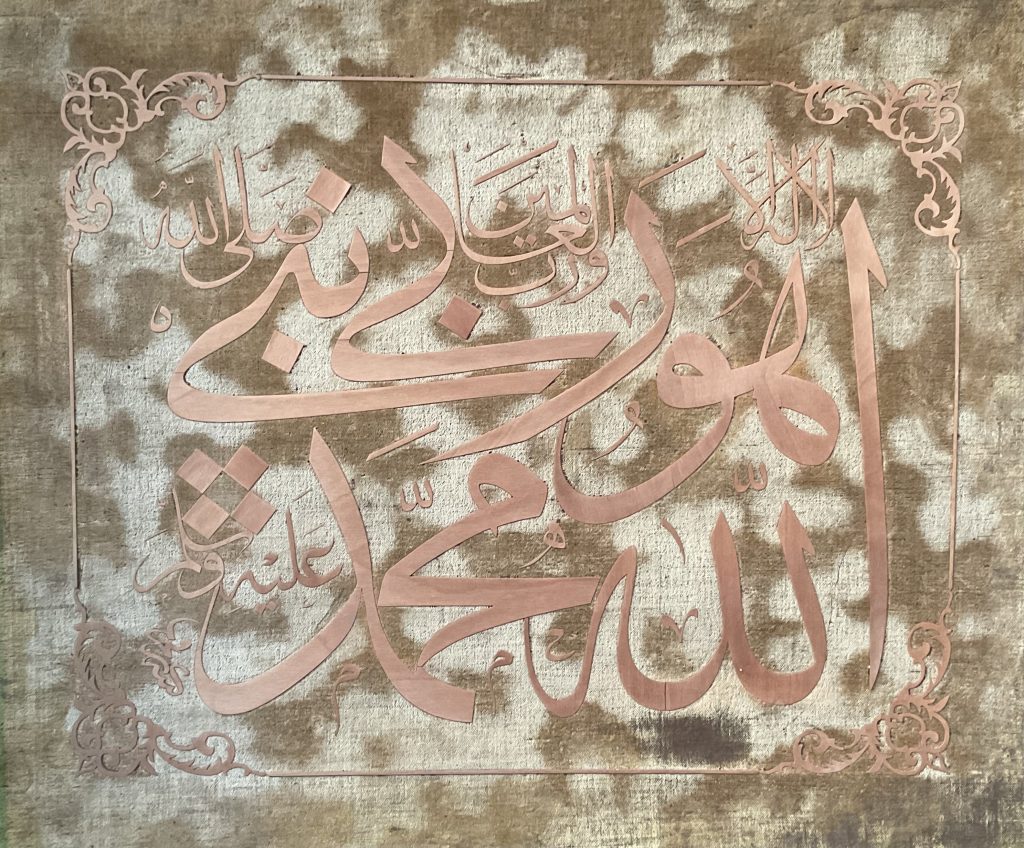 الله لا اله الا هو
ربي ورب العالمين
محمد نبي صلى الله
عليه وسلم